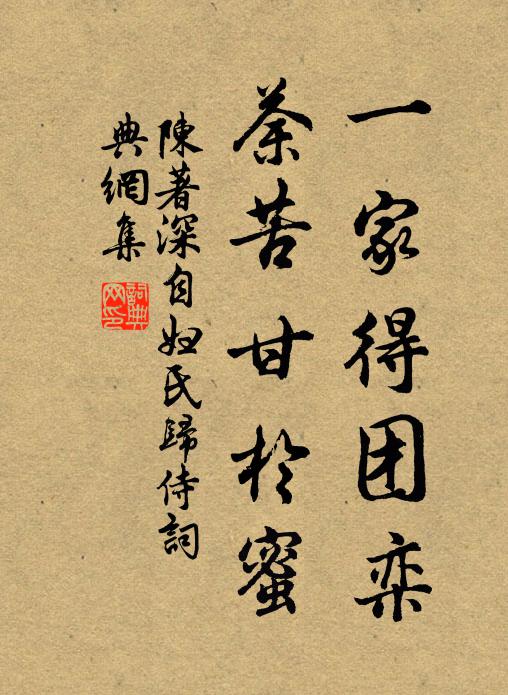 一家得团栾
荼苦甘於蜜
陳著深自妲氏歸侍詞
典網集
詞典
网印